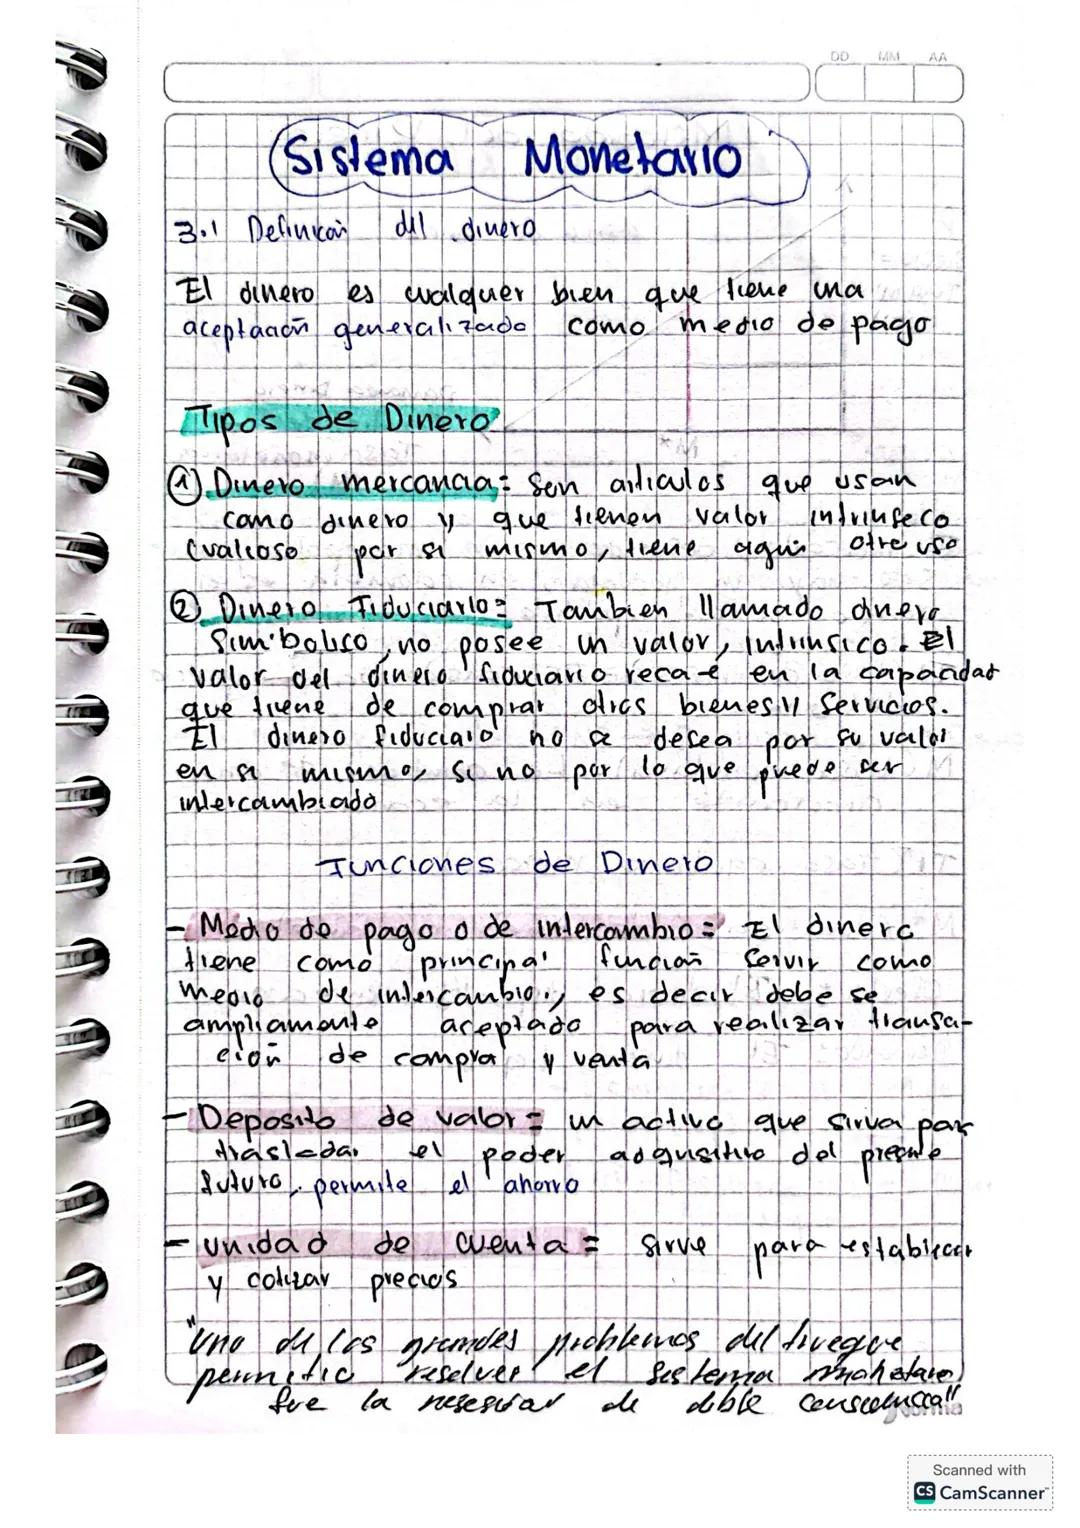 DD MM AA
Sistema Monetario
3.1 Definicion del dinero
El dinero es cualquier bien que tiene una
aceptación generalizada como medio de pago
Tipos de Dinero
① Dinero mercancia= Son articulos que usan
como dinero y que tienen valor intrinseco
(valioso por si mismo, tiene otro uso
② Dinero Fiduciario= Tambien llamado dinero
Simbolico, no posee un valor, intrinsico. El
valor del dinero fiduciario recae en la capacidad
que tiene de comprar otros bienes y Servicios.
El dinero fiduciario no se desea por su valor
en si mismo, si no por lo que puede ser
intercambiado
Funciones de Dinero
- Medio de pago o de intercambio= El dinero
tiene como principal función servir como
medio de intercambio., es decir debe se
ampliamente aceptado para realizar transa-
ción de compra y venta
- Deposito de valor= un activo que sirva para
trasladar el poder adquisitivo del presente
futuro, permite el ahorro
- unidad de cuenta= sirve para establecer
y cotizar precios
"Uno de los grandes problemas del trueque
permitio resolver el sistema monetario
fue la de doble
norma
Scanned with
CS CamScanner